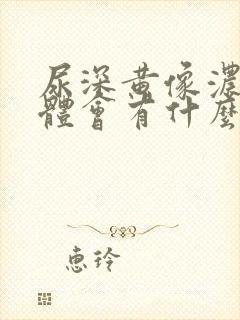 尿深黃像濃
體會有什麼
惠玲